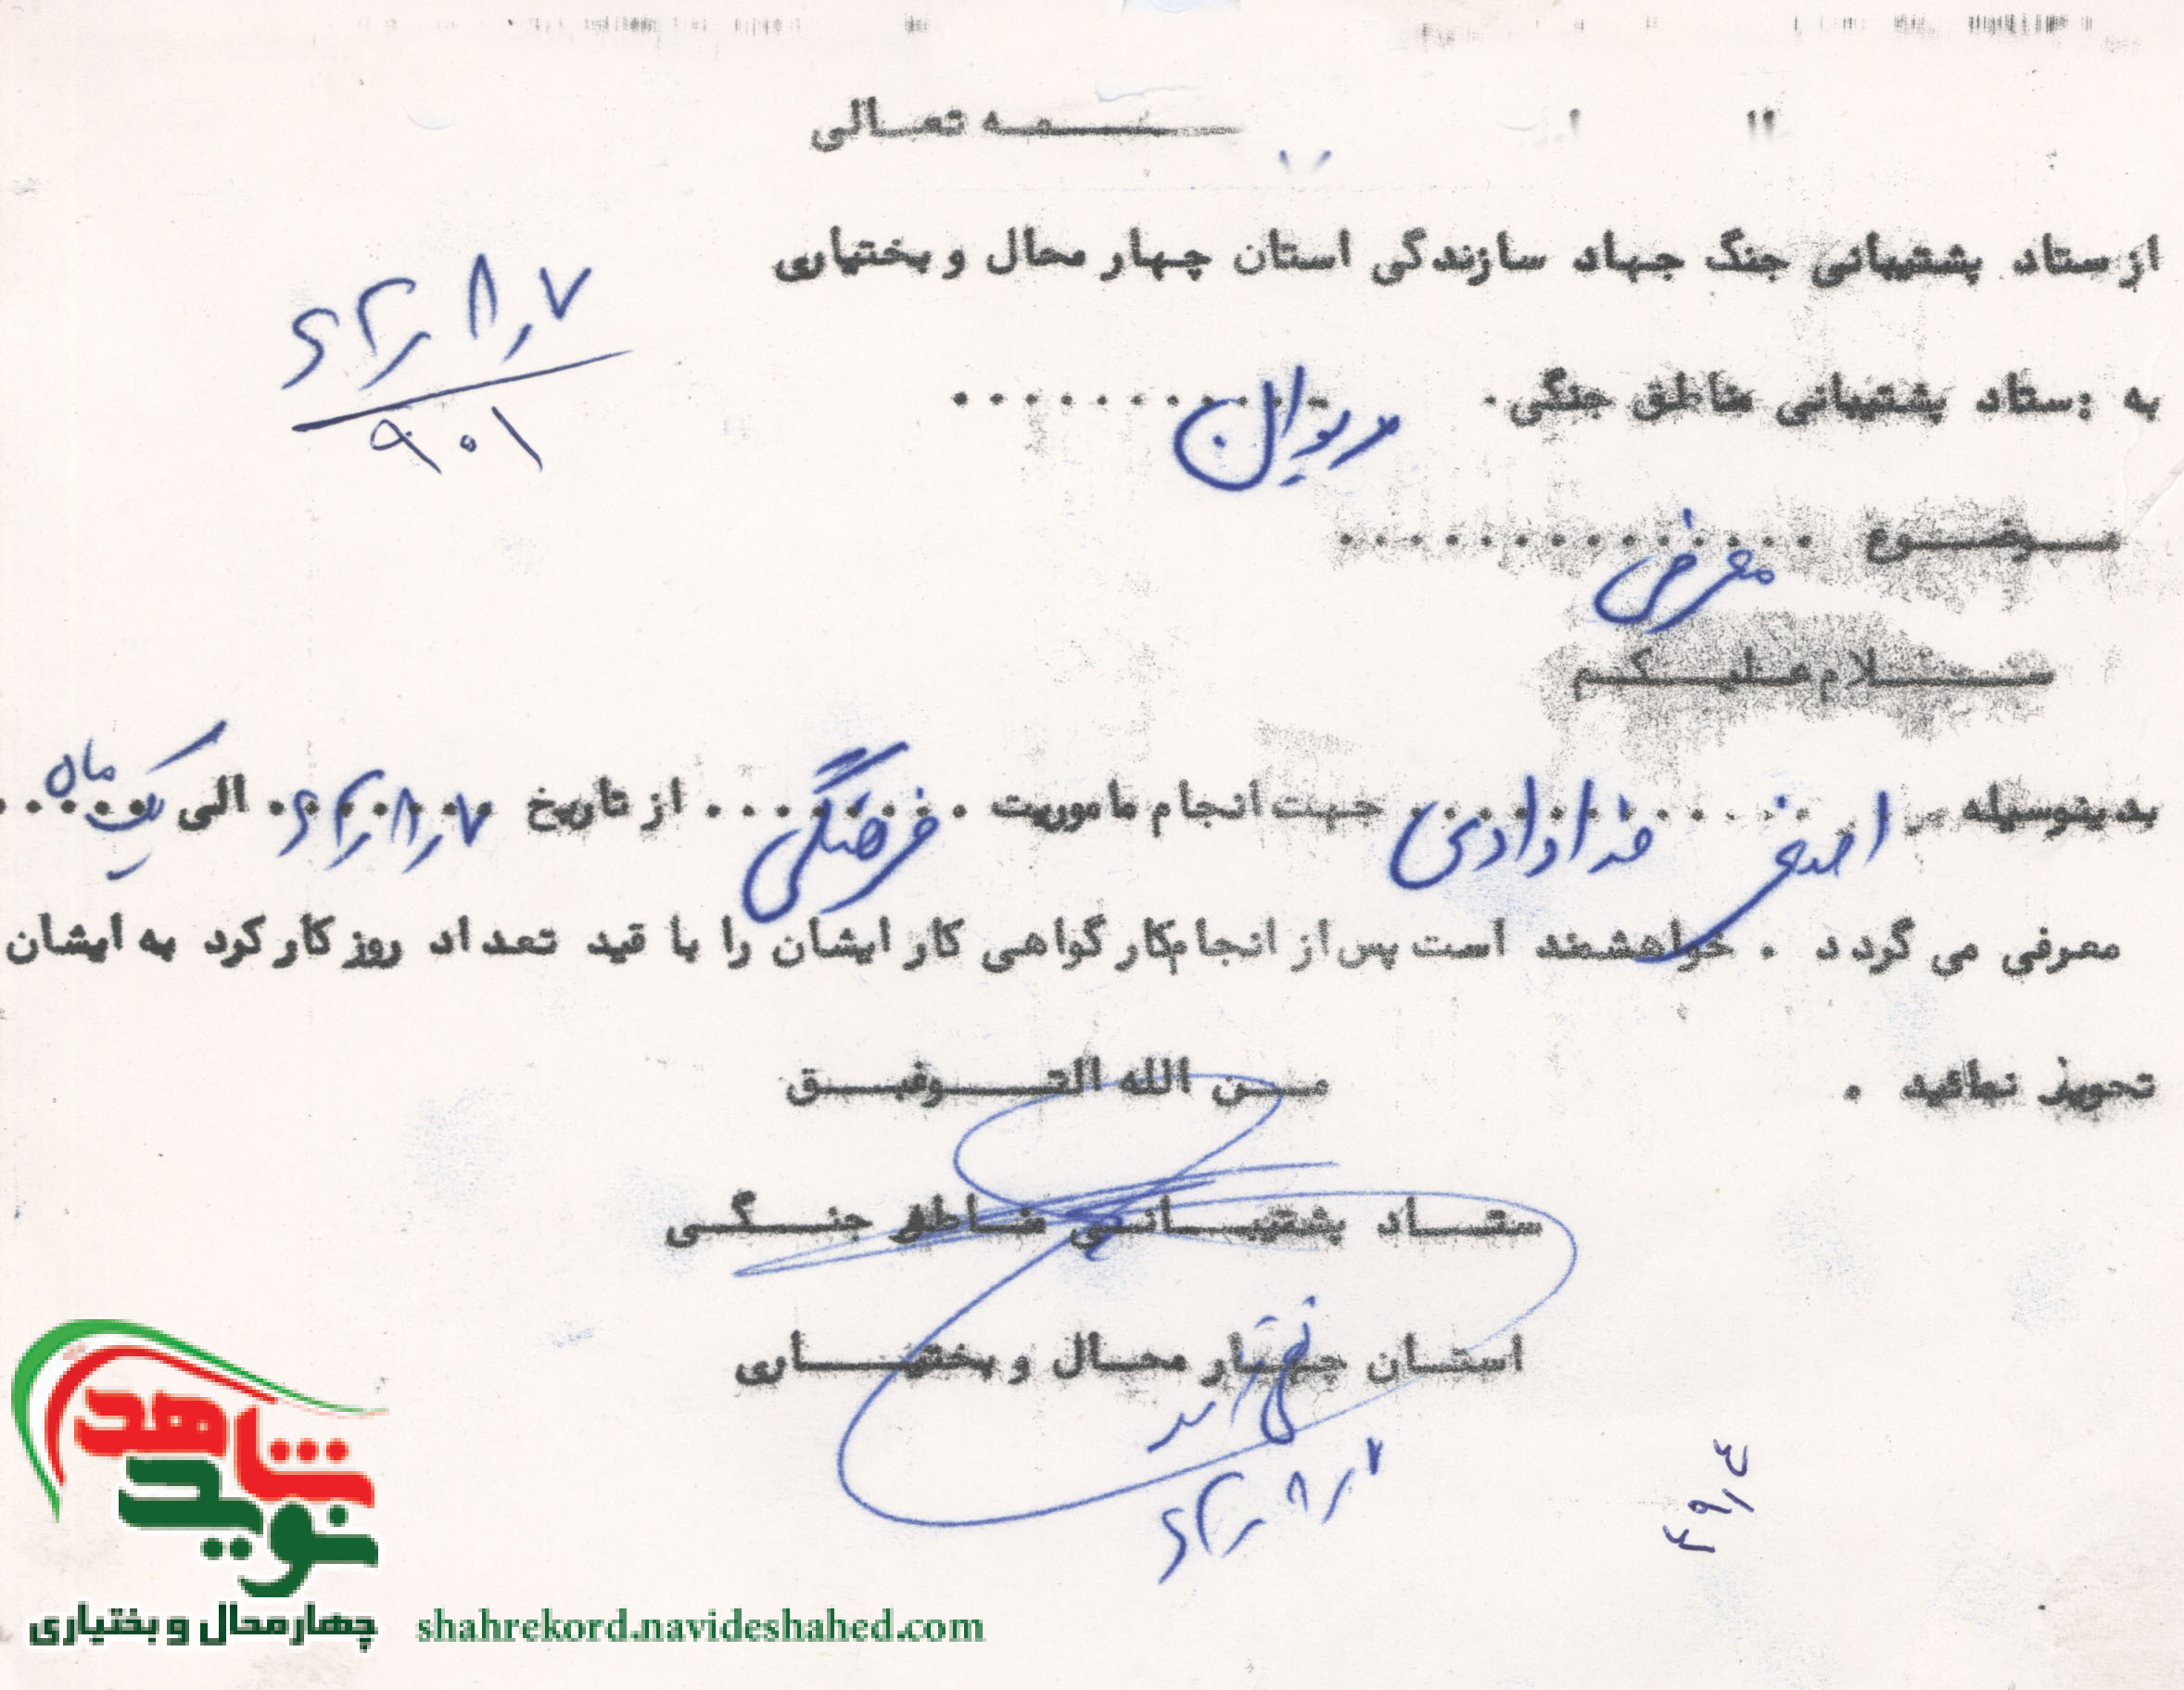 بسمه تعالی
از ستاد پشتیبانی جنگ جهاد سازندگی استان چهار محال و بختیاری
۶۲ر۸ر۷
۹۰۱
به : ستاد پشتیبانی مناطق جنگی. مریوان
موضوع معرفی
سلام علیکم
بدینوسیله اصغر خدادادی جهت انجام ماموریت فرهنگی از تاریخ ۶۲ر۸ر۷ الی یک ماه
معرفی می گردد . خواهشمند است پس از انجام کار گواهی کار ایشان را با قید تعداد روز کار کرد به ایشان
تحویل نمائید .
من الله التوفیق
ستاد پشتیبانی مناطق جنگی
استان چهار محال و بختیاری
۶۲ر۸ر۷
شاهد
نوید
چهارمحال و بختیاری
shahrekord.navideshahed.com